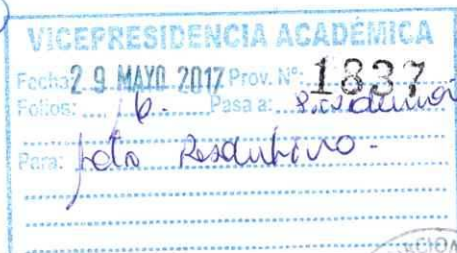 VICEPRESIDENCIA ACADÉMICA
Fecha 29 MAYO 2017 Prov. Nº: 1837
Folios: 6.- Pasa a:
Para: Resolutivo.-